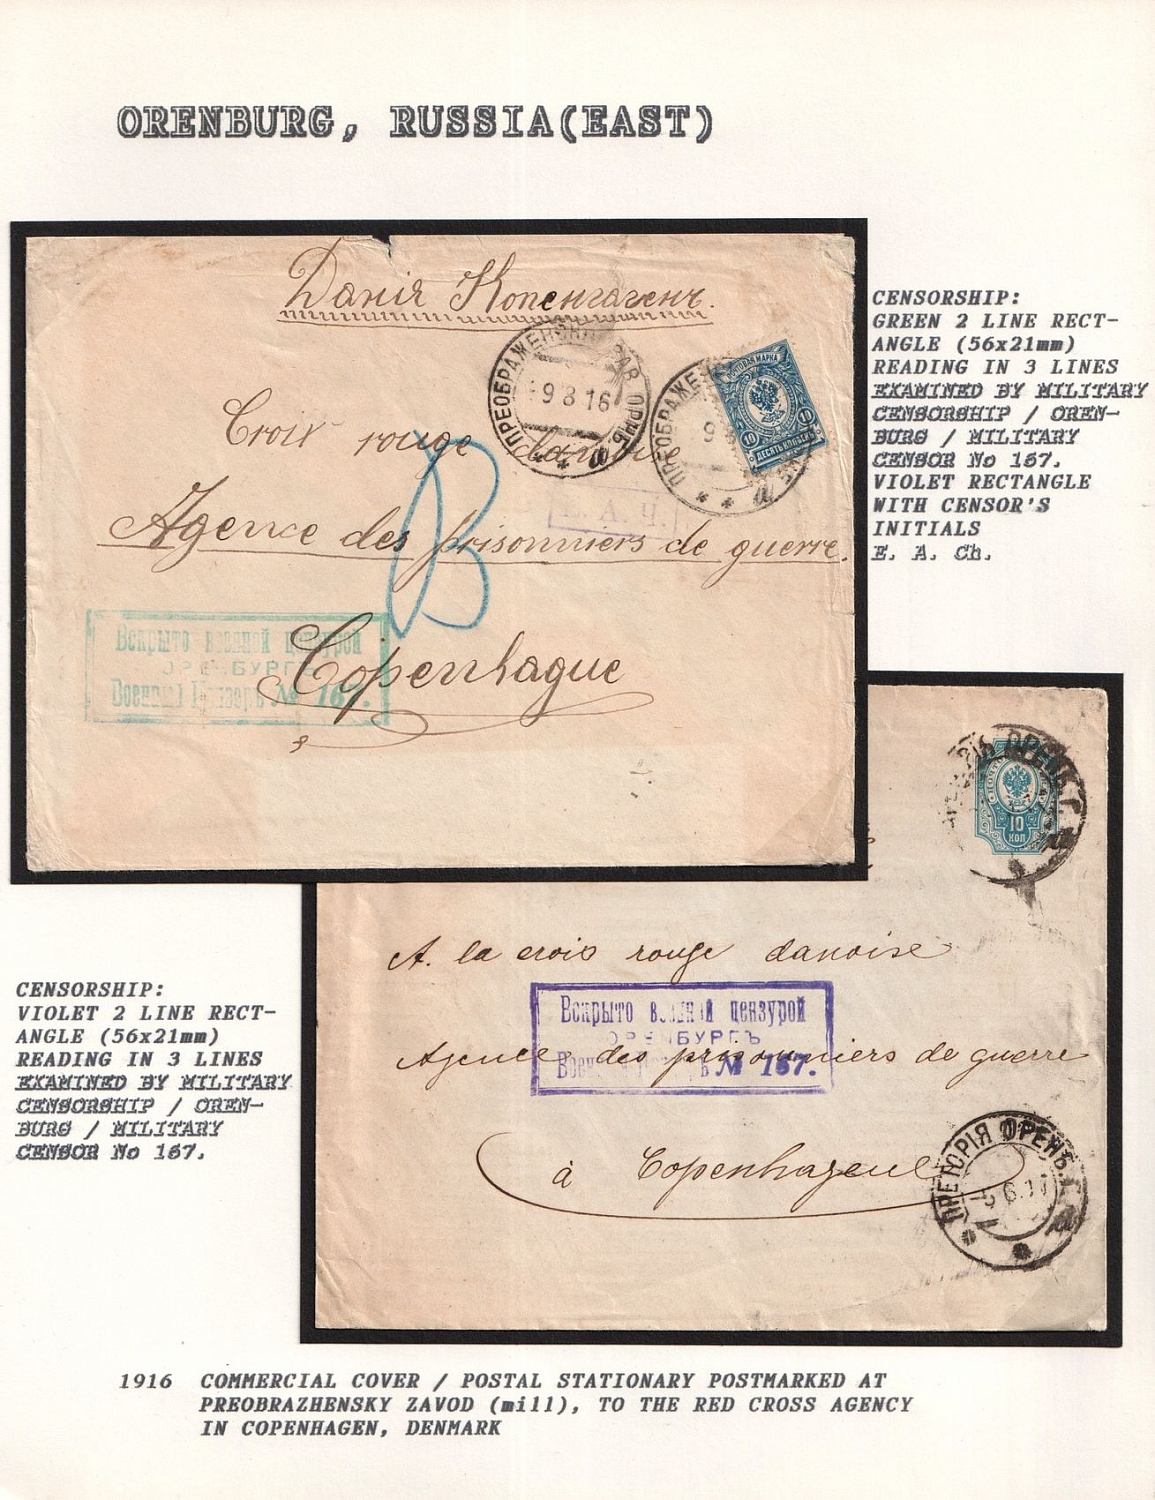 ORENBURG, RUSSIA(EAST)
Данія Копенгагенъ.
ПРЕОБРАЖЕНСК. ЗАВ. ОРНБ. а
9 8 16
ПРЕОБРАЖЕ
9
ПОЧТОВАЯ МАРКА
10 10
ДЕСЯТЬ КОПѢЕКЪ
Croix rouge danoise
Е. А. Ч.
Agence des prisonniers de guerre.
В
Вскрыто военной цензурой
ОРЕНБУРГЪ
Военный Цензоръ № 167.
Copenhague
CENSORSHIP:
GREEN 2 LINE RECT-
ANGLE (56x21mm)
READING IN 3 LINES
EXAMINED BY MILITARY
CENSORSHIP / OREN-
BURG / MILITARY
CENSOR No 167.
VIOLET RECTANGLE
WITH CENSOR'S
INITIALS
E. A. Ch.
10
КОП
A. la crois rouge danoise
Вскрыто военной цензурой
ОРЕНБУРГЪ
Agence des prisonniers de guerre
Военный Цензоръ № 167.
à Copenhague
ПРЕТОРІЯ ОРЕНБ. Г. а
CENSORSHIP:
VIOLET 2 LINE RECT-
ANGLE (56x21mm)
READING IN 3 LINES
EXAMINED BY MILITARY
CENSORSHIP / OREN-
BURG / MILITARY
CENSOR No 167.
1916 COMMERCIAL COVER / POSTAL STATIONARY POSTMARKED AT
PREOBRAZHENSKY ZAVOD (mill), TO THE RED CROSS AGENCY
IN COPENHAGEN, DENMARK